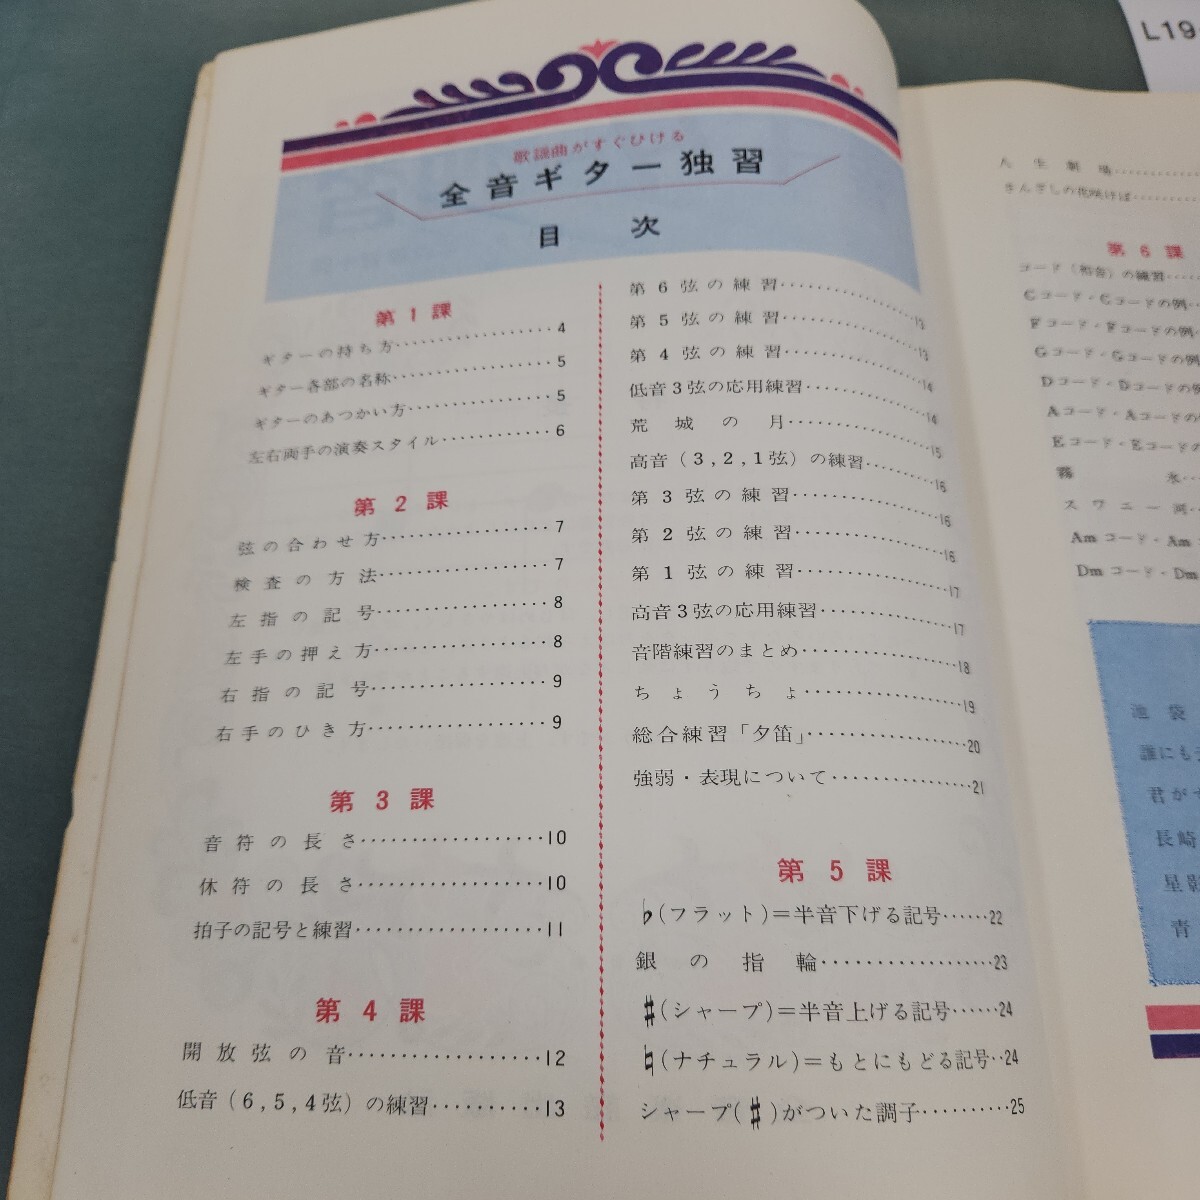 L19
歌謡曲がすぐひける
全音ギター独習
目次
第1課
ギターの持ち方……………… 4
ギター各部の名称……………… 5
ギターのあつかい方……………… 5
左右両手の演奏スタイル………… 6
第2課
弦の合わせ方……………… 7
検査の方法……………… 7
左指の記号……………… 8
左手の押え方……………… 8
右指の記号……………… 9
右手のひき方……………… 9
第3課
音符の長さ………………10
休符の長さ………………10
拍子の記号と練習………………11
第4課
開放弦の音………………12
低音(6,5,4弦)の練習…………13
第6弦の練習………………13
第5弦の練習………………13
第4弦の練習………………14
低音3弦の応用練習………………14
荒城の月………………15
高音(3,2,1弦)の練習…………16
第3弦の練習………………16
第2弦の練習………………16
第1弦の練習………………17
高音3弦の応用練習………………17
音階練習のまとめ………………18
ちょうちょ………………19
総合練習「夕笛」………………20
強弱・表現について………………21
第5課
♭(フラット)=半音下げる記号……22
銀の指輪………………23
♯(シャープ)=半音上げる記号……24
♮(ナチュラル)=もとにもどる記号‥24
シャープ(♯)がついた調子…………25
人生劇場………………
さんざしの花咲けば…………
第6課
コード(和音)の練習……
Cコード・Cコードの例…
Fコード・Fコードの例…
Gコード・Gコードの例
Dコード・Dコードの例
Aコード・Aコードの例
Eコード・Eコードの
霧氷……
スワニー河…
Amコード・Am
Dmコード・Dm
池袋
誰にも
君がす
長崎
星影
青